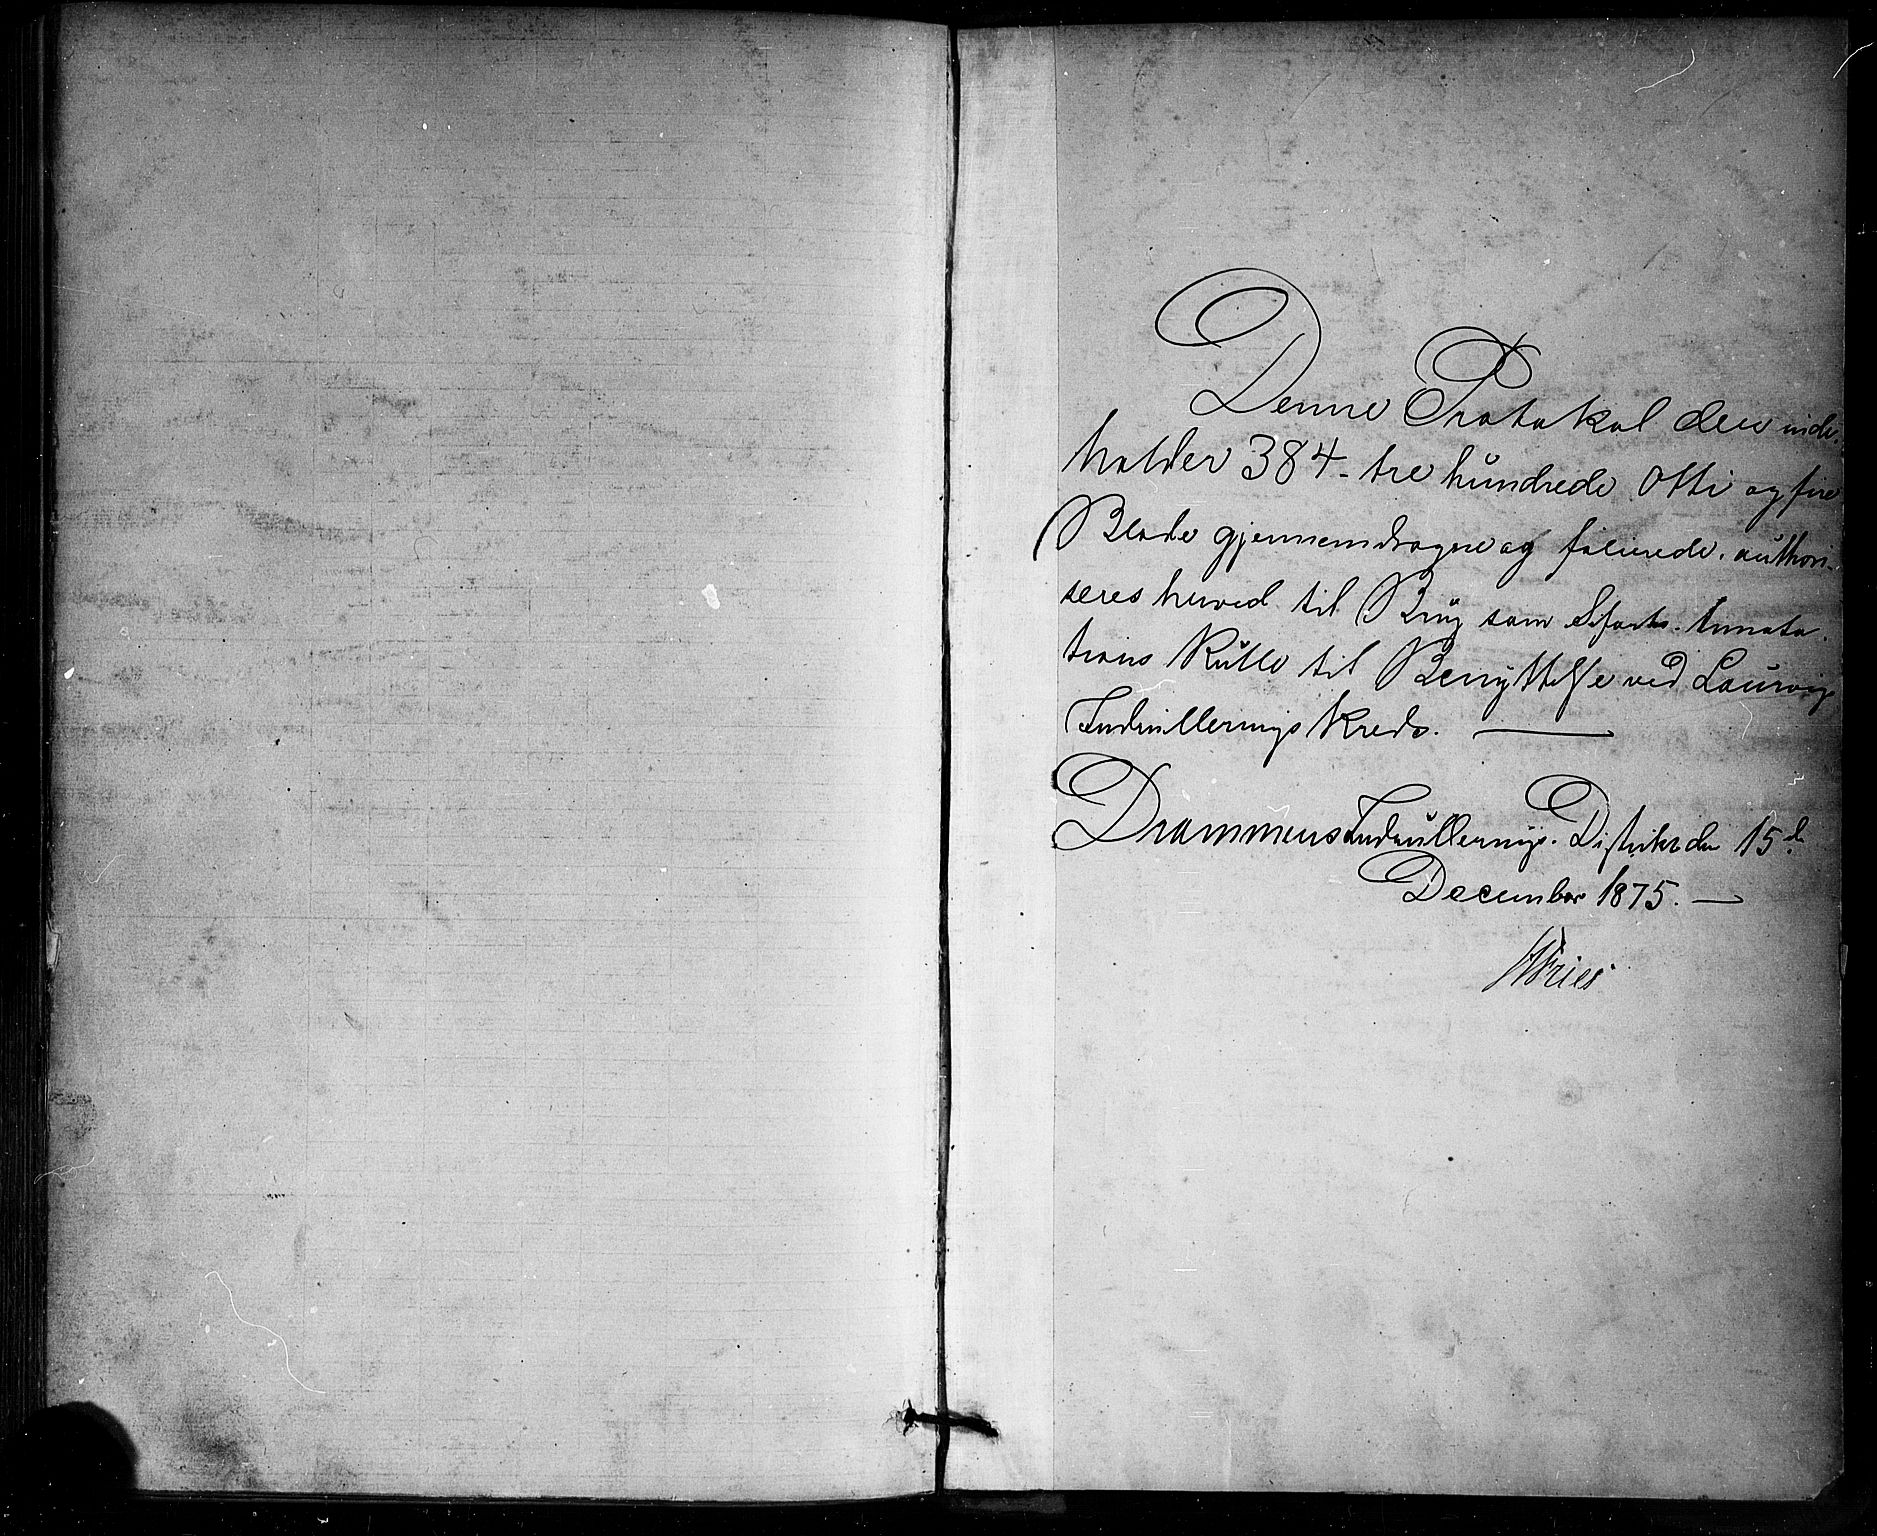 Denne Protokol der inde-
holder 384 - tre hundrede otti og fire
Blade gjennemdragne og folierede, authori-
seres herved til Brug som Søfarts-Annota-
tions Rulle til Benyttelse ved Laurvigs
Indrulleringskreds. —
Drammens Indrullerings-Distrikt den 15d
December 1875. —
Fries